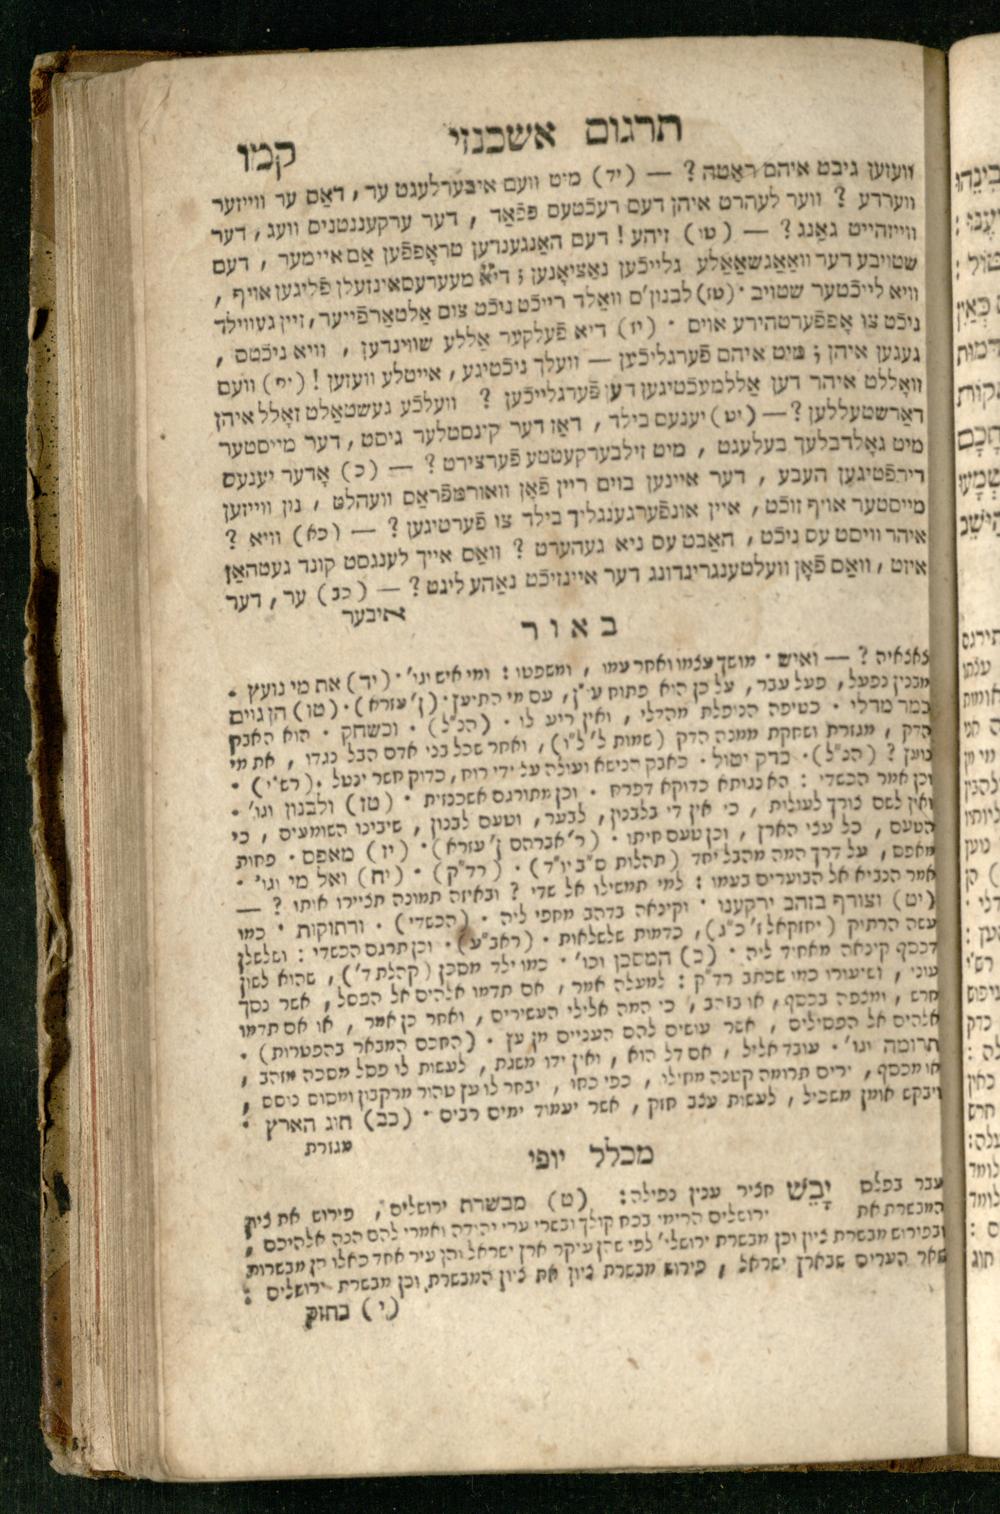 תרגום אשכנזי קמו
וועזען גיבט איהם ראַטה ? — (יד) מיט וועם איבערלעגט ער, דאַס ער ווייזער
ווערדע ? ווער לעהרט איהן דעם רעכטעס פפאַד , דער ערקעננטנים וועג, דער
ווייזהייט גאַנג ? — (טו) זיהע ! דעם האַנגענדען טראָפּפען אַם איימער , דעם
שטויבע דער וואַאַגשאַאַלע גלייכען נאַציאָנען ; דיא מעערעסאינזעלן פליגען אויף ,
וויא לייכטער שטויב · (טז) לבנון'ס וואַלד רייכט ניכט צום אַלטאַרפייער, זיין געווילד
ניכט צו אָפּפערטהירע אוים · (יז) דיא פעלקער אַללע שווינדען , וויא ניכטס ,
געגען איהן ; מיט איהם פערגליכען — וועלך ניכטיגע, אייטלע וועזען ! (יח) וועם
וואָללט איהר דען אַללמעכטיגען דען פערגלייכען ? וועלכע געשטאַלט זאָלל איהן
דאַרשטעללען ? — (יט) יענעס בילד , דאַז דער קינסטלער גיסט, דער מייסטער
מיט גאָלדבלעך בעלעגט , מיט זילבערקעטטע פערצירט ? — (כ) אָדער יענעס
דירפטיגען העבע , דער איינען בוים ריין פאָן וואורמפראַס וועהלט , נון ווייזען
מייסטער אויף זוכט, איין אונפערגענגליך בילד צו פערטיגען ? — (כא) וויא ?
איהר וויסט עס ניכט, האַבט עס ניא געהערט ? וואַס אייך לענגסט קונד געטהאַן
איזט , וואַס פאָן וועלטענגרינדונג דער איינזיכט נאַהע ליגט ? — (כב) ער, דער
איבער
באור
ואיש · מושך עצמו ואחר עמו , ומשפטו : ומי איש וגו' · (יד) את מי נועץ ·
מבנין נפעל, פעל עבר, על כן הוא פתוח ע"ן, עם מי התיעץ · (ן' עזרא) · (טו) הן גוים
כמר מדלי · כטיפה הנופלת מהדלי , ואין ריע לו · (הנ"ל) · וכשחק · הוא האבק
הדק , מגזרת ושחקת ממנה הדק (שמות ל' ל"ו), ואחר שכל בני אדם הבל נגדו , את מי
נועץ ? (הנ"ל) · כדק יטול · כאבק הנישא ועולה על ידי רוח, כדוק חשר ינטל · (רש"י) ·
וכן אמר הכשדי : הא נגוותא כדוקא דפרח · וכן מתורגם אשכנזית · (טז) ולבנון וגו' ·
ואין לשם צורך לעולות , כי אין די בלבנון, לבער, וטעם לבנון , שיבינו השומעים , כי
הטעם , כל עצי הארץ , וכן טעם חיתו · (ר' אברהם ן' עזרא) · (יז) מאפס · פחות
מאפס, על דרך המה מהבל יחד (תהלות ס"ב יו"ד) · (רד"ק) · (יח) ואל מי וגו' ·
אמר הנביא אל הבוערים בעמו : למי תמשילו אל שדי ? ובאיזה תמונה תציירו אותו ? —
(יט) וצורף בזהב ירקענו · וקינאה בדהב מחפי ליה · (הכשדי) · ורתוקות · כמו
עשה הרתיק (יחזקאל ז' כ"ג), כדמות שלשלאות · (ראב"ע) · וכן תרגם הכשדי : ושלשלן
דכסף קינאה מאחיד ליה · (כ) המסכן וכו' · כמו ילד מסכן (קהלת ד'), שהוא לשון
עוני , ושיעורו כמו שכתב רד"ק : למעלה אמר , אם תדמו אלהים אל הפסל, אשר נסך
חרש , ומצפה בכסף, או בזהב, כי המה אלילי העשירים , ואחר כן אמר , או אם תדמו
אלהים אל הפסילים , אשר עושים להם העניים מן עץ · (החכם המבאר בהפטרות) ·
תרומה וגו' · עובד אליל , אם דל הוא , ואין ידו משגת, לעשות לו פסל מסכה מזהב ,
או מכסף, ירים תרומה קטנה מחילו , כפי כחו , יבחר לו עץ טהור מרקבון ומסוס נוסס ,
ויבקש אומן משכיל , לעשות עצב חזק , אשר יעמוד ימים רבים · (כב) חוג הארץ ·
מגזרת
מכלל יופי
עבר בפלס יָבֵשׁ חציר ענין כפילה : (ט) מבשרת ירושלים , פירוש את ציון
המבשרת את ירושלים הרימי בכח קולך ובשרי ערי יהודה ואמרי להם הנה אלהיכם ,
ובפירוש מבשרת ציון וכן מבשרת ירושלי' לפי שהן עיקר ארץ ישראל והן עיר אחד כאלו הן מבשרות
שאר הערים שבארץ ישראל , פירוש מבשרת ציון את ציון המבשרת וכן מבשרת ירושלים :
(י) בחזק